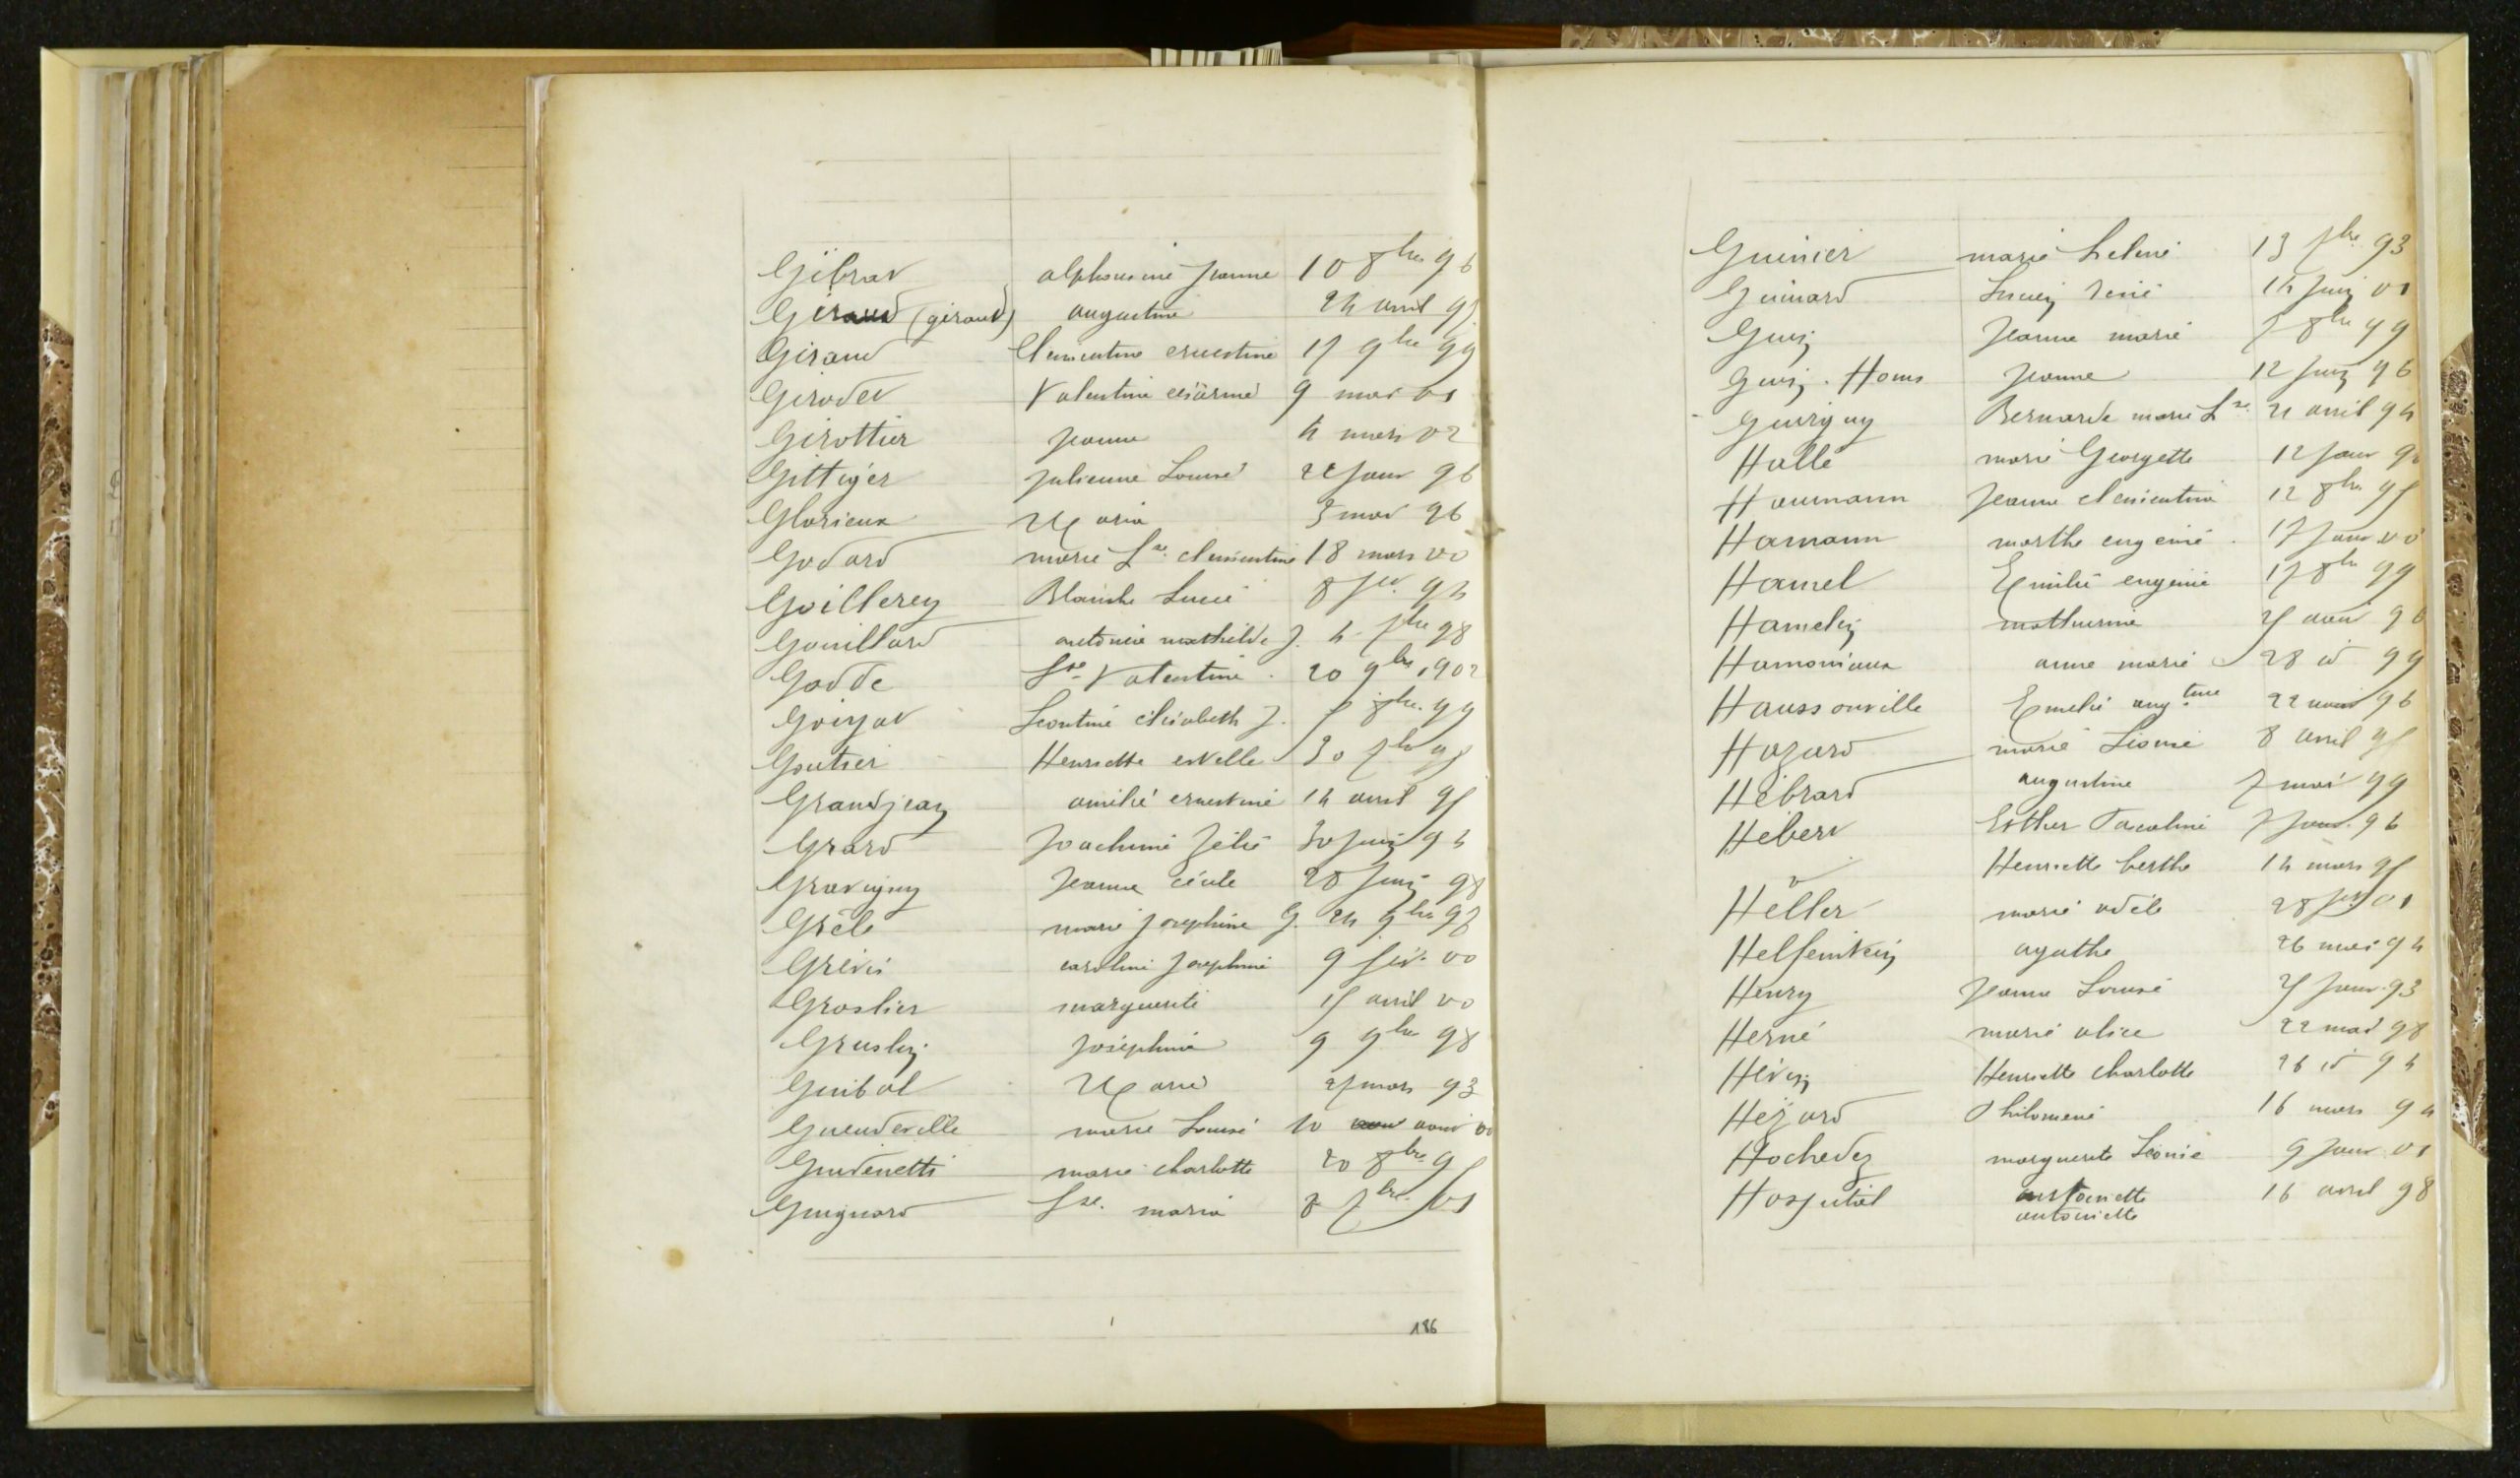 Gibrat alphonsine Jeanne 10 8bre 96
Giraud (giraud) augustine 24 avril 97
Giraud Clementine ernestine 17 9bre 99
Girodet Valentine 9 mai 01
Girottier Jeanne 4 mars 02
Gittiger Julienne Louise 22 Janv 96
Glorieux Maria 3 mai 96
Godard marie Lse clementine 18 mars 00
Goillerey Blanche Lucie 8 fev. 94
Gouillard antonie mathilde J. 4 7bre 98
Godde Lse Valentine 20 9bre 1902
Goiyat Leontine elisabeth J. 7 8bre 99
Goutier Henriette estelle 30 7bre 95
Grandjean amélie ernestine 14 avril 95
Grard Joachime Zélie 30 Juin 94
Gravigny Jeanne cécile 28 Juin 98
Grêle marie josephine G. 24 9bre 97
Grévis caroline Josephine 9 fév. 00
Groslier marguerite 15 avril 00
Gruslin Joséphine 9 9bre 98
Guibal Marie 27 mars 93
Gueudeville marie Louise 10 aout 00
Gudenetti marie charlotte 20 8bre 95
Guignard Lse. maria 8 7bre. 01
186
Guinier marie helene 13 7bre 93
Guinard Lucie Renée 14 Juin 01
Guy Jeanne marie 7 8bre 99
Guy. Homs Jeanne 12 Juin 96
Guirigny Bernarde marie Lse 21 avril 94
Hallé marie Georgette 12 Janv
Haumann Jeanne clementine 12 8bre 95
Hamann marthe eugenie 17 Janv 00
Hamel Emilie eugenie 17 8bre 99
Hamelin mathurine 25 aout 96
Hamoniaux anne marie 28 id 99
Haussonville Emelie augtine 22 96
Hazard marie Léonie 8 avril 95
Hébrard augustine 7 mai 99
Hébert Esther Pacaline 7 Janv. 96
Henriette berthe 14 mars 95
Heller marie adèle 28 01
Helfenstein agathe 26 mai 94
Henry Jeanne Louise 25 Janv. 93
Herné marie alice 22 mai 98
Hévin Henriette charlotte 26 id 94
Hézard Philomené 16 mars 94
Hochedez marguerite Léonie 9 Janv 01
Hospital antoinette 16 avril 98
antoinette